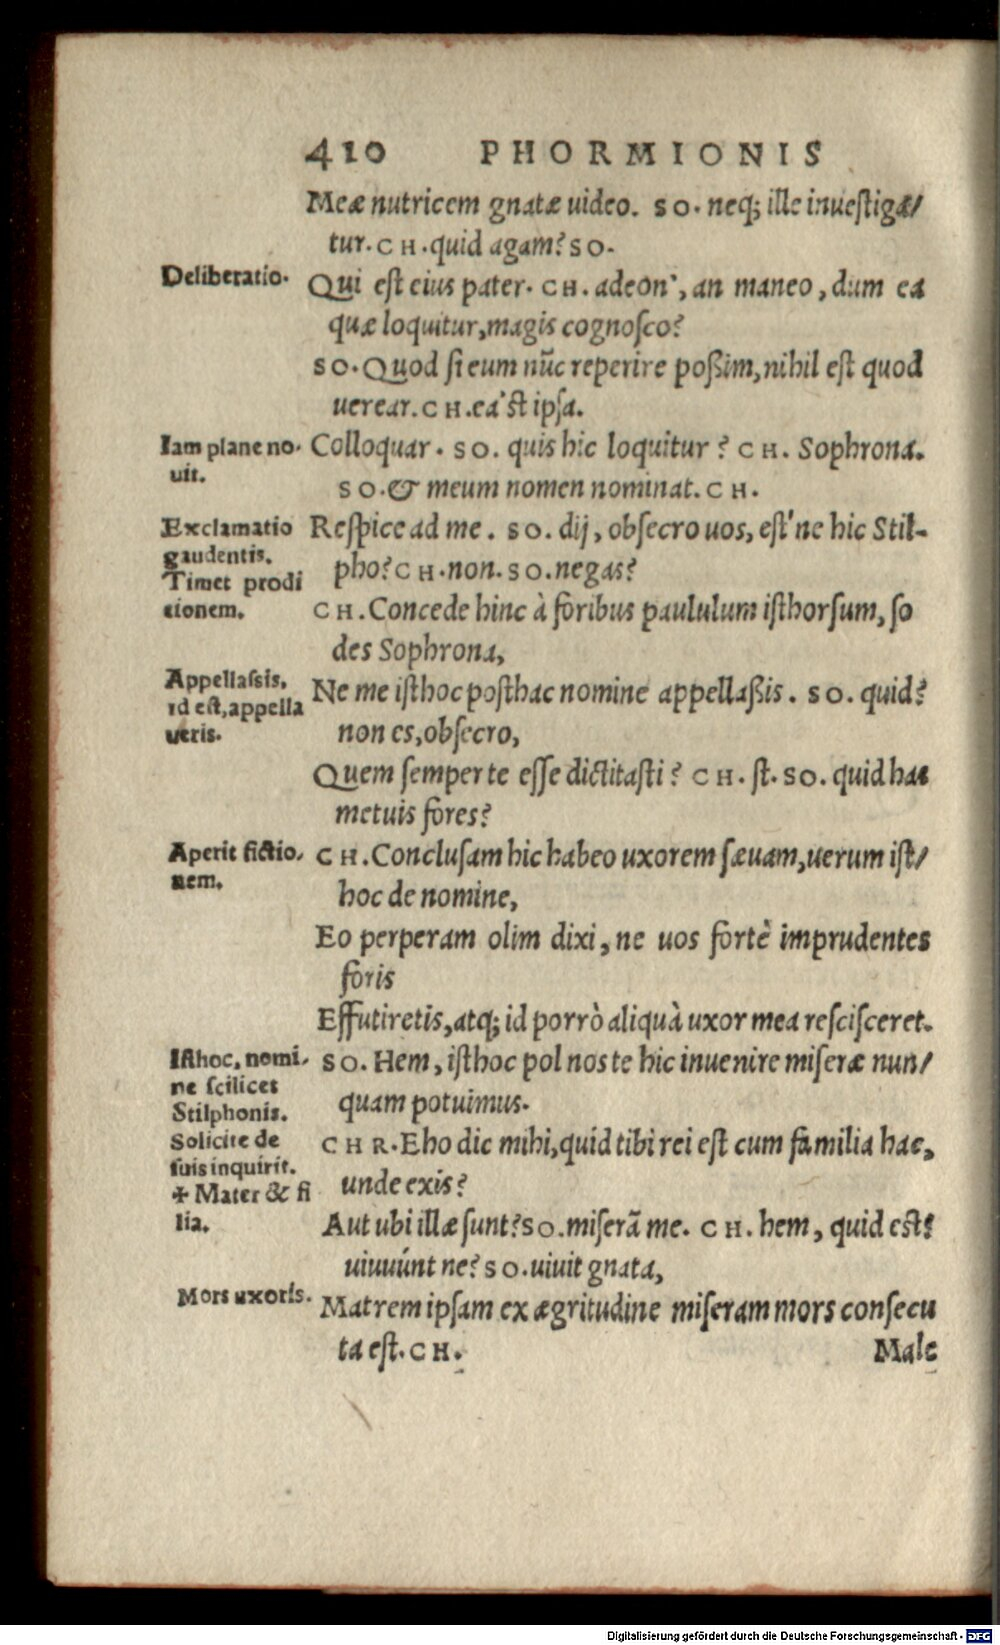 410 PHORMIONIS
Meæ nutricem gnatæ uideo. SO. neq; ille inueſtigæ/
tur. CH. quid agam? SO.
Deliberatio.
Qui eſt eius pater. CH. adeon', an maneo, dum ea
quæ loquitur, magis cognoſco?
SO. Quod ſi eum nūc reperire poßim, nihil eſt quod
uerear. CH. ea'ſt ipſa.
Iam plane no-
uit.
Colloquar. SO. quis hic loquitur? CH. Sophrona.
SO. & meum nomen nominat. CH.
Exclamatio
gaudentis.
Timet prodi
tionem.
Reſpice ad me. SO. dij, obſecro uos, eſt'ne hic Stil-
pho? CH. non. SO. negas?
CH. Concede hinc à foribus paululum iſthorſum, ſo
des Sophrona,
Appellaſsis,
id eſt, appella
ueris.
Ne me iſthoc poſthac nomine appellaßis. SO. quid?
non es, obſecro,
Quem ſemper te eſſe dictitaſti? CH. ſt. SO. quid has
metuis fores?
Aperit fictio-
nem.
CH. Concluſam hic habeo uxorem ſæuam, uerum iſt/
hoc de nomine,
Eo perperam olim dixi, ne uos fortè imprudentes
foris
Effutiretis, atq; id porrò aliquà uxor mea reſciſceret.
Iſthoc, nomi-
ne ſcilicet
Stilphonis.
Solicite de
ſuis inquirit.
✢ Mater & fi
lia.
SO. Hem, iſthoc pol nos te hic inuenire miſeræ nun/
quam potuimus.
CHR. Eho dic mihi, quid tibi rei eſt cum familia hac,
unde exis?
Aut ubi illæ ſunt? SO. miſerā me. CH. hem, quid est?
uiuuńt ne? SO. uiuit gnata,
Mors uxoris.
Matrem ipſam ex ægritudine miſeram mors conſecu
ta eſt. CH.
Male
Digitalisierung gefördert durch die Deutsche Forschungsgemeinschaft - DFG